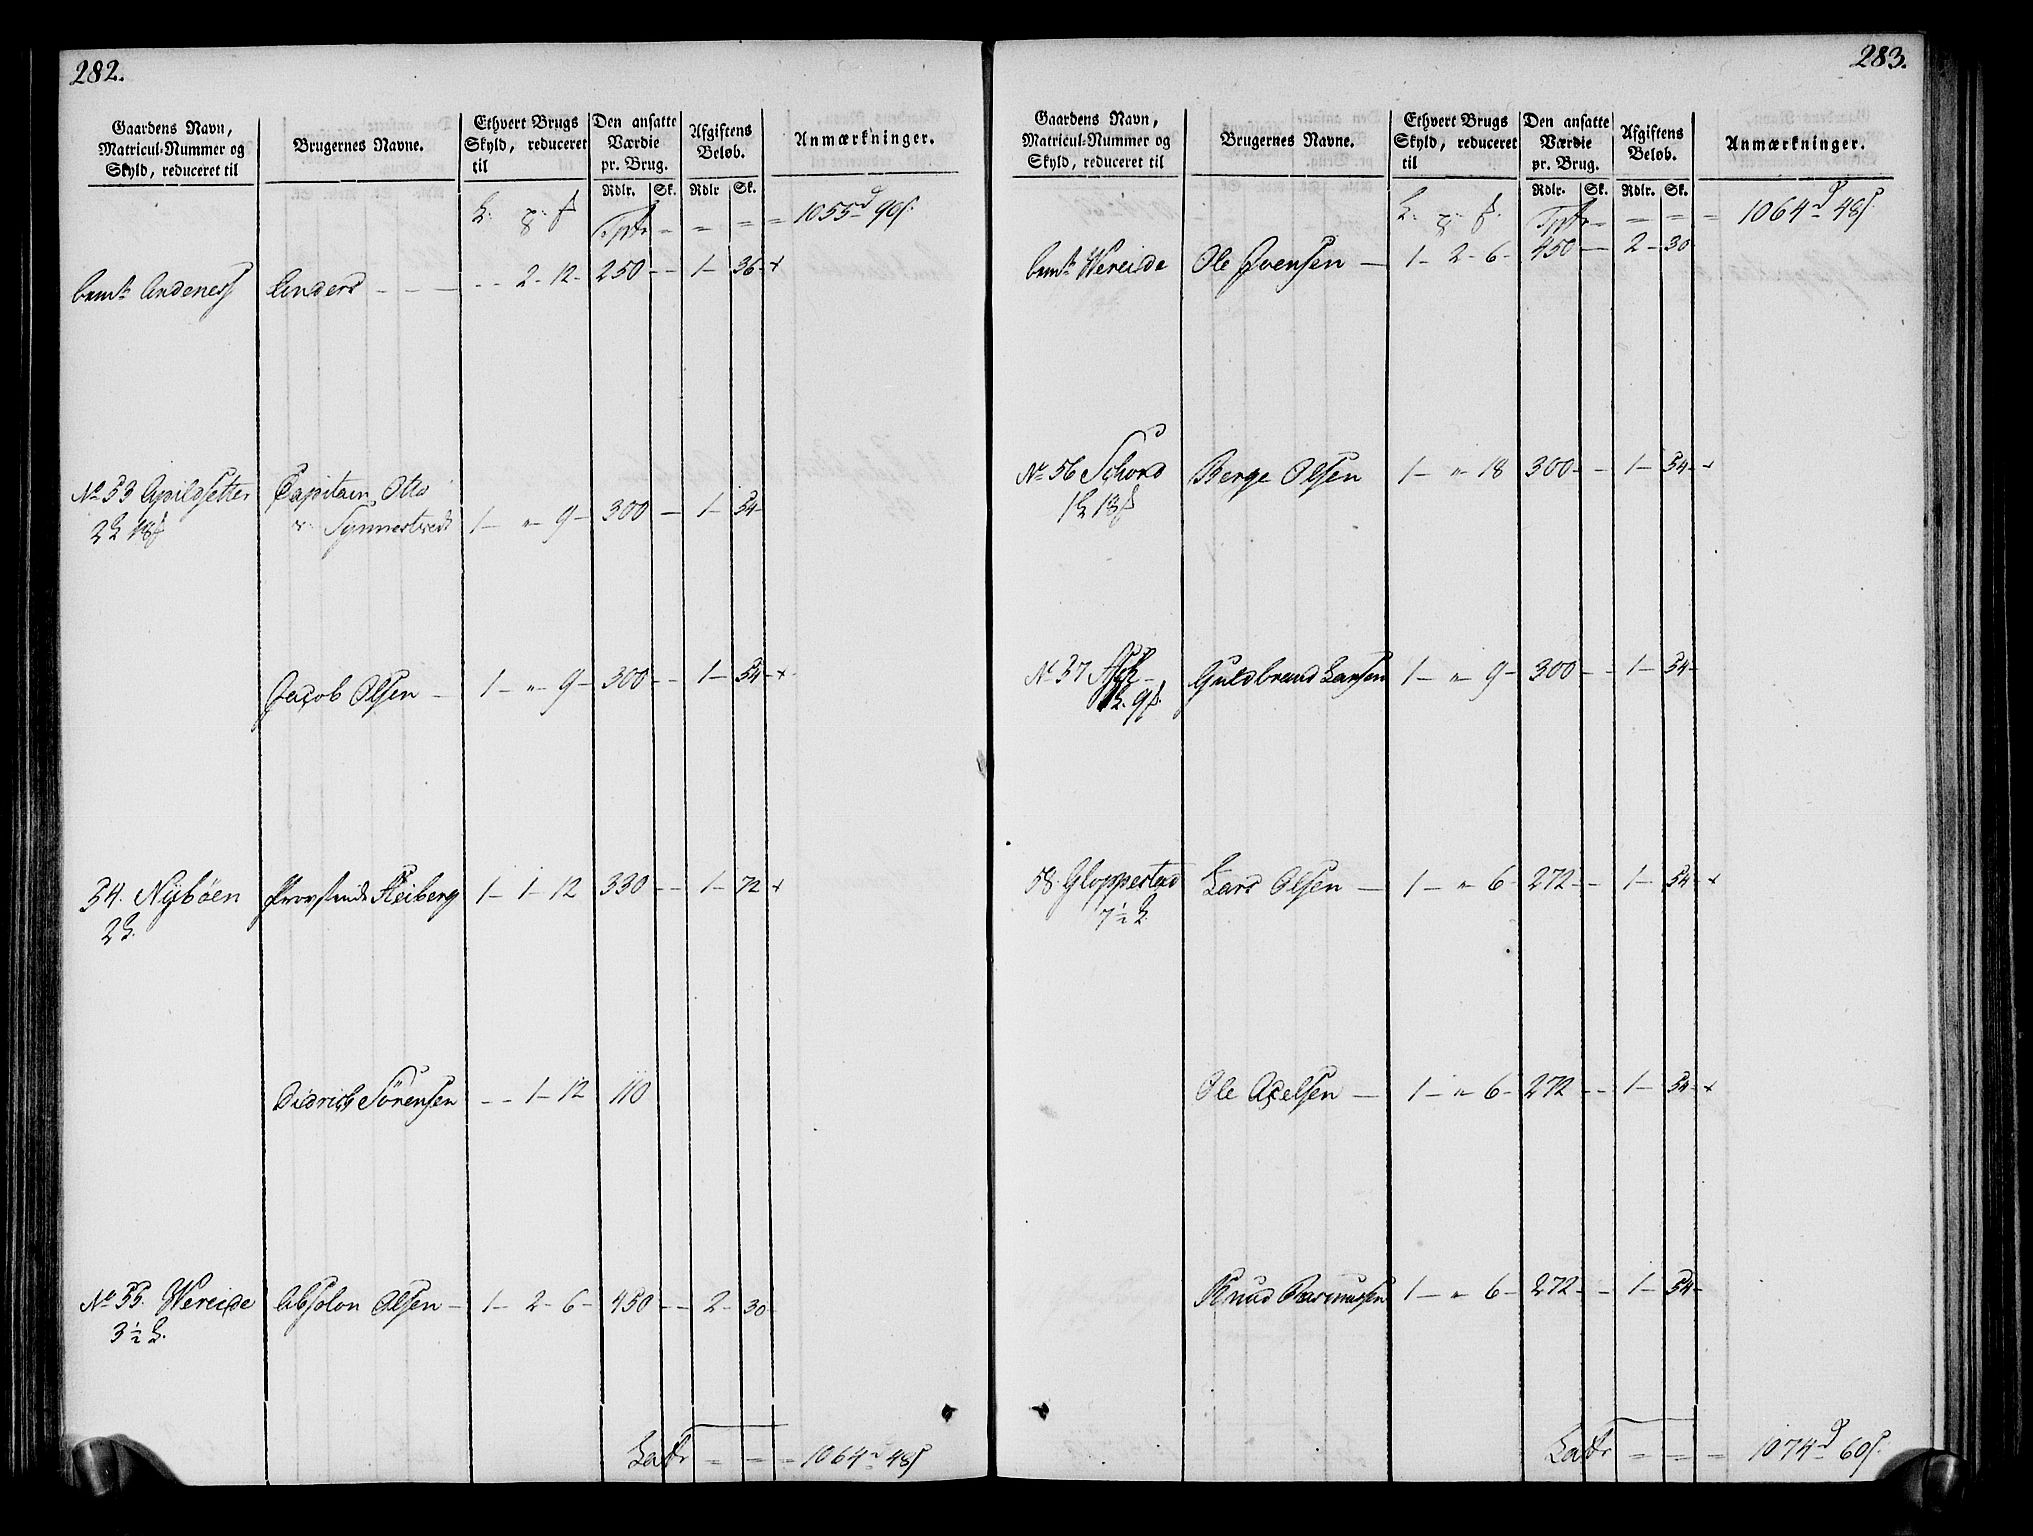 282.
Gaardens Navn, Matricul-Nummer og Skyld, reduceret til
Brugernes Navne.
Ethvert Brugs Skyld, reduceret til
Den ansatte Værdie pr. Brug.
Afgiftens Beløb.
Anmærkninger.
Rdlr. Sk. Rdlr Sk.
Tpt - = = = 1055 90
Andenes Anders - - - - - 2 - 12 - 250 - - 1 - 36 - +
No 53 Apildsetter Capitain Otto
2 18 v: Synnestvedt 1 - " - 9 - 300 - 1 - 54 -
Jacob Olsen - 1 - " - 9 - 300 - - 1 - 54 - +
54. Nybøen Heiberg 1 - 1 - 12 330 - - 1 - 72 +
2
Didrich Sørensen - - 1 - 12 110
No 55. Wereide Absolon Olsen - 1 - 2 - 6 - 450 - - 2 - 30 -
3 ½
Latr = = = 1064 48
283.
Gaardens Navn, Matricul-Nummer og Skyld, reduceret til
Brugernes Navne.
Ethvert Brugs Skyld, reduceret til
Den ansatte Værdie pr. Brug.
Afgiftens Beløb.
Anmærkninger.
Rdlr. Sk. Rdlr. Sk.
Tptr - = = = 1064 48
Wereide Ole Ivensen - 1 - 2 - 6 - 450 - 2 - 30
No 56 Schord Berge Olsen 1 - " 18 300 - - 1 - 54 - +
1 18
No 57 Guldbrand Larsen 1 - " 9 - 300 - - 1 - 54 -
9
58. Gloppestad Lars Olsen - 1 - " 6 - 272 - - 1 - 54 - +
7 ½
Ole Axelsen - 1 - " 6 - 272 - - 1 - 54 - +
Knud Rasmussen 1 - " 6 - 272 - - 1 - 54 -
Latr = = = 1074 60